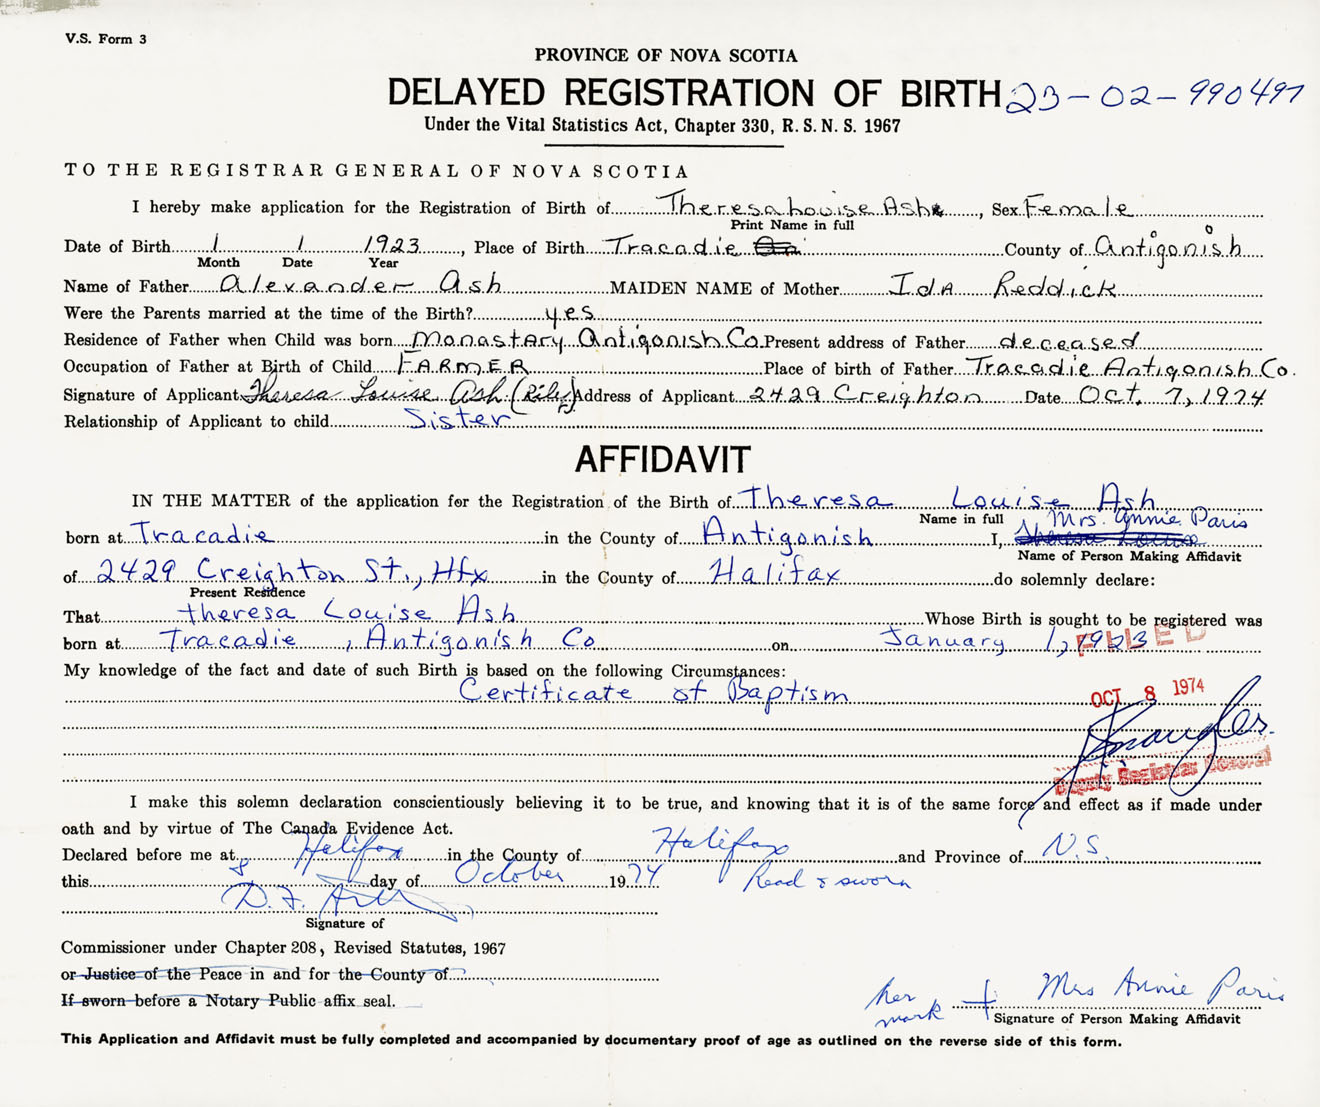 V.S. Form 3
PROVINCE OF NOVA SCOTIA
DELAYED REGISTRATION OF BIRTH 23-02-990497
Under the Vital Statistics Act, Chapter 330, R.S.N.S. 1967
TO THE REGISTRAR GENERAL OF NOVA SCOTIA
I hereby make application for the Registration of Birth of Theresa Louise Ash, Sex Female
Print Name in full
Date of Birth 1 1 1923, Place of Birth Tracadie County of Antigonish
Month Date Year
Name of Father Alexander Ash MAIDEN NAME of Mother Ida Reddick
Were the Parents married at the time of the Birth? yes
Residence of Father when Child was born Monastary Antigonish Co. Present address of Father deceased
Occupation of Father at Birth of Child FARMER Place of birth of Father Tracadie Antigonish Co.
Signature of Applicant Theresa Louise Ash (Riley) Address of Applicant 2429 Creighton Date Oct. 7, 1974
Relationship of Applicant to child Sister
AFFIDAVIT
IN THE MATTER of the application for the Registration of the Birth of Theresa Louise Ash
Name in full Mrs. Annie Paris
born at Tracadie in the County of Antigonish I,
Name of Person Making Affidavit
of 2429 Creighton St., Hfx in the County of Halifax do solemnly declare:
Present Residence
That Theresa Louise Ash Whose Birth is sought to be registered was
born at Tracadie, Antigonish Co on January 1, 1923
FILED
My knowledge of the fact and date of such Birth is based on the following Circumstances:
Certificate of Baptism
OCT 8 1974
Deputy Registrar General
I make this solemn declaration conscientiously believing it to be true, and knowing that it is of the same force and effect as if made under
oath and by virtue of The Canada Evidence Act.
Declared before me at Halifax in the County of Halifax and Province of N.S.
this 8 day of October 1974 Read & sworn
D. F.
Signature of
Commissioner under Chapter 208, Revised Statutes, 1967
or Justice of the Peace in and for the County of
If sworn before a Notary Public affix seal.
her mark + Mrs Annie Paris
Signature of Person Making Affidavit
This Application and Affidavit must be fully completed and accompanied by documentary proof of age as outlined on the reverse side of this form.